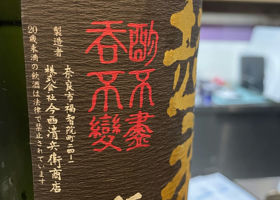 酌不盡
呑不變
製造者
奈良市福智院町二四ー一
株式会社今西清兵衛商店
20歳未満の飲酒は法律で禁止されています